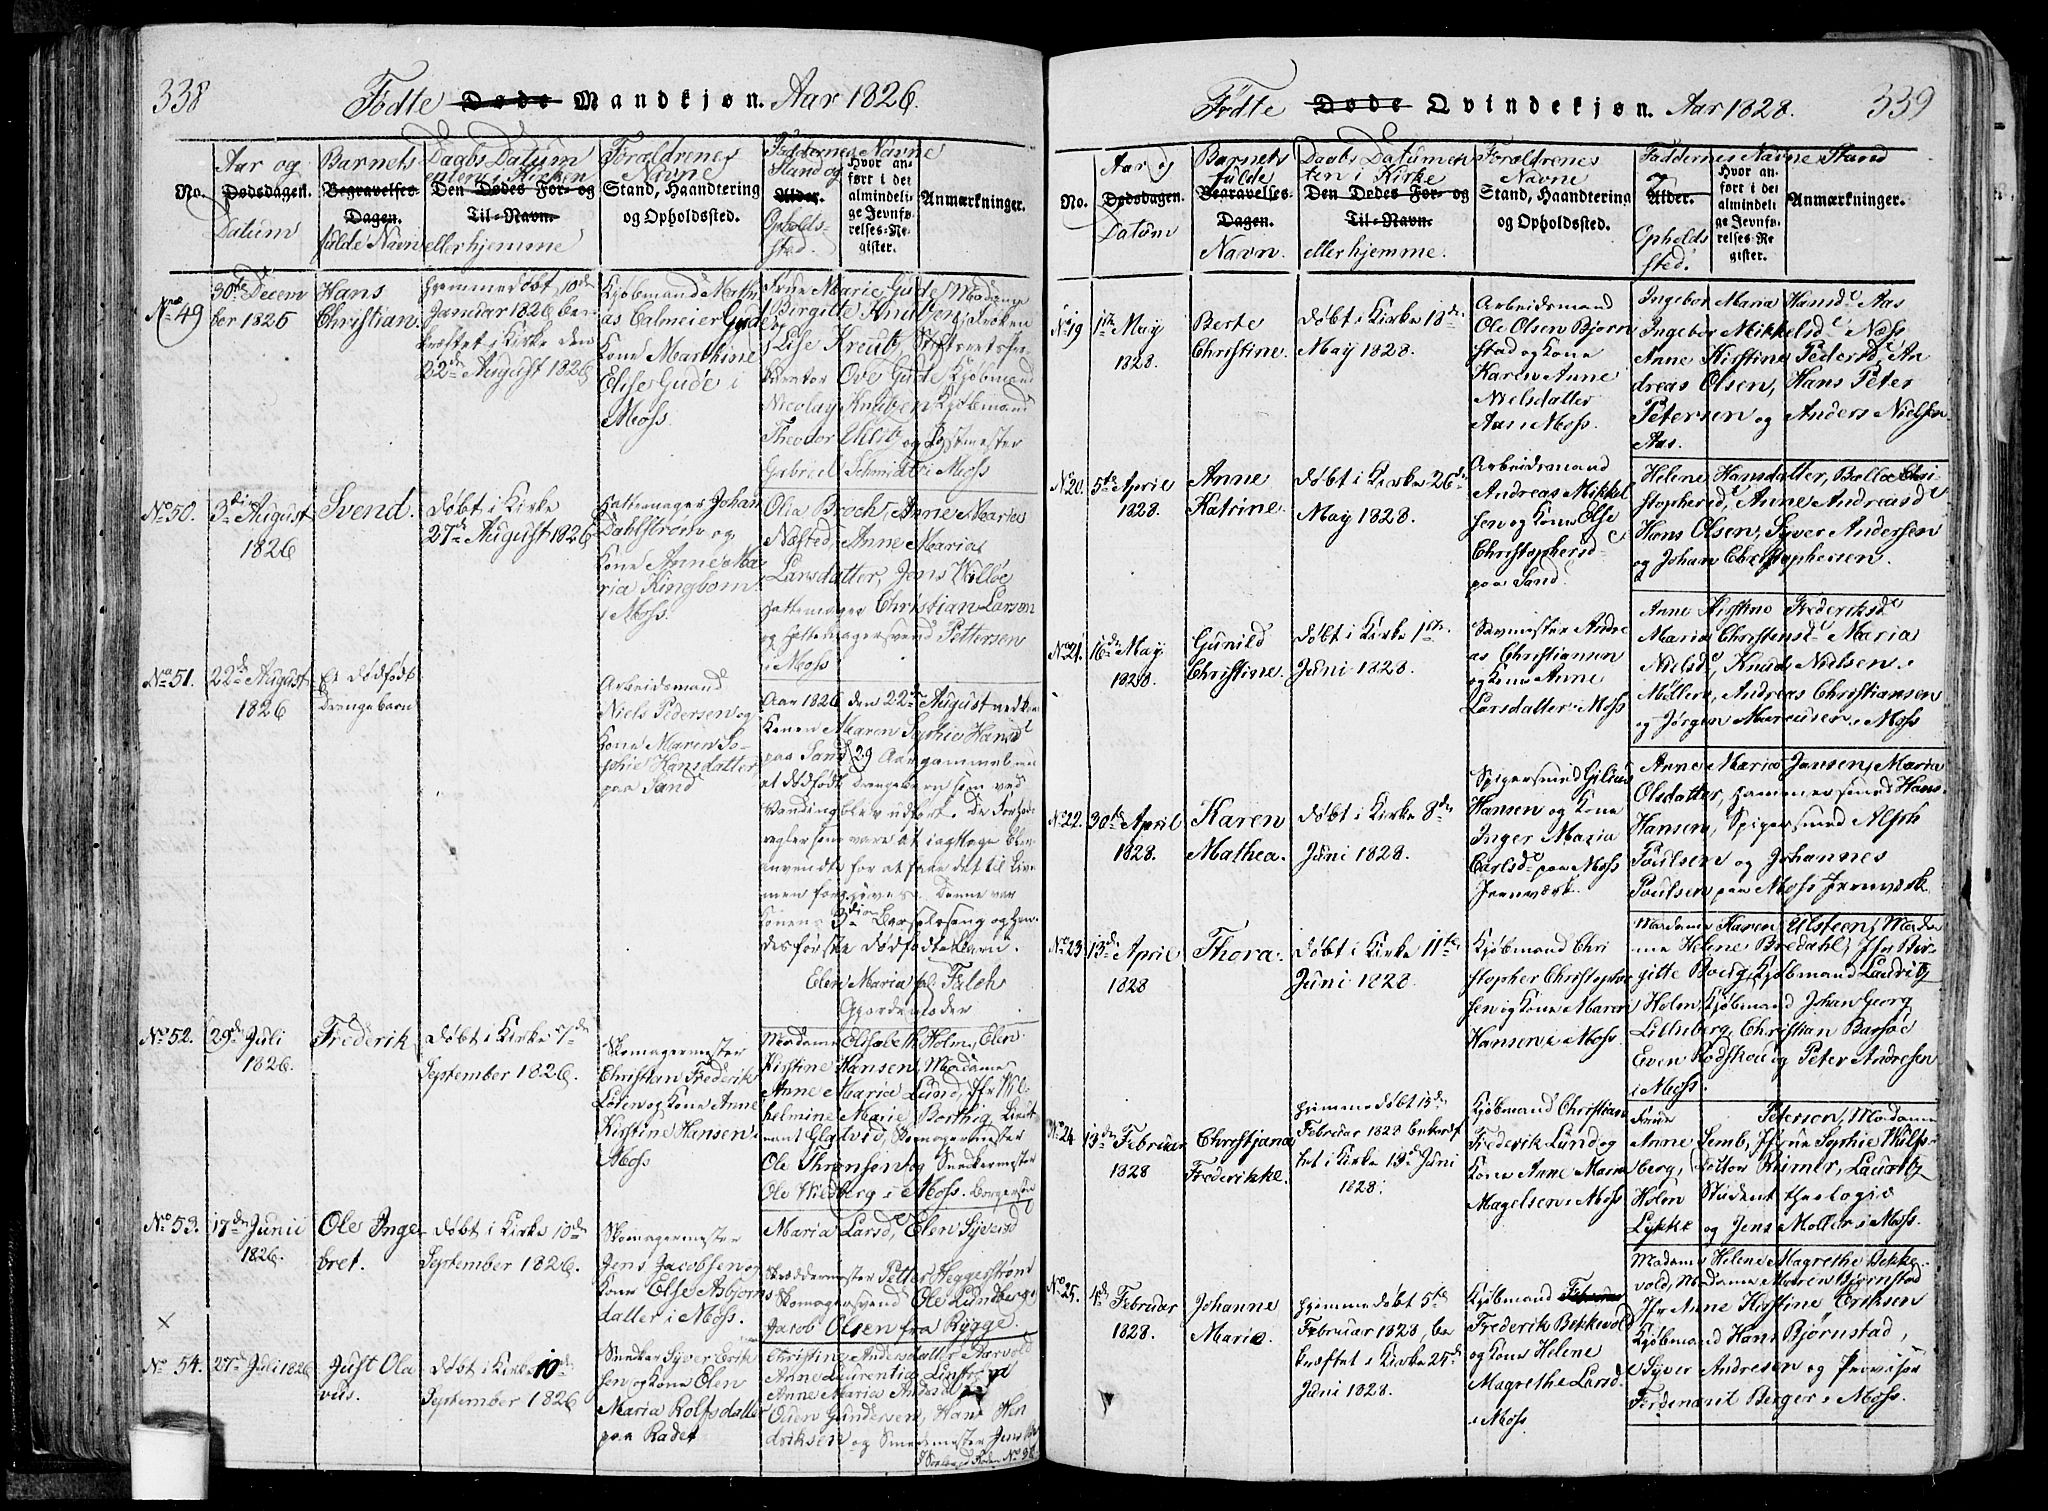 338
Fødte Døde Mandkjøn. Aar 1826.
No.
Aar og
Dødsdagen.
Datum
Barnets
Begravelses-
Dagen.
fulde Navn
Daabs Datum
enten i Kirken
Den Dødes For- og
Til-Navn.
eller hjemme
Forældrenes
Navne
Stand, Haandtering
og Opholdssted.
Faddernes Navne
Stand og
Alder.
Opholds-
sted.
Hvor an-
ført i det
almindeli-
ge Jevnfø-
relses-Re-
gister.
Anmærkninger.
No 49
30te Decem
ber 1825
Hans
Christian.
Hjemmedøbt 10de
Januar 1826 be-
kræftet i Kirke den
22de August 1826
Kjøbmand Mathi
as Calmeier Gude
Kone Marthine
Elise Gude i
Moss.
Frue Marie Gude, Madame
Birgitte Knutzen, Frøken
Lise Kreutz,
Ove Gude Kjøbmand
Nicolay Knutzen Kjøbmand
Theodor og Postmester
Gabriel Schmidt i Moss
No 50.
3die August
1826
Svend.
Døbt i Kirke
27de August 1826
Hattemager Johan
Dahlstrøm og
Kone Anne Ma
ria Kingbom
i Moss.
Olia Broch, Anne Maria
Næsted, Anne Maria
Larsdatter, Jens Willøe
Hattemager Christian Larson
og Hattemagersvend Pettersen
i Moss
No 51.
22de August
1826
Et dødfødt
Drengebarn
Arbeidsmand
Niels Pedersen og
Kone Maren So-
phie Hansdatter
paa Sand
Aar 1826 den 22de August
Konen Maren Sophie Hansd
paa Sand 29 Aar gammel
et dødfødt Drengebarn som ved
Vending blev udført. De Forhold
regler som vare at iagttage blev
anvendte for at faae det til Live
men forgjæves. Denne var
Konens 3die Barselseng og hen-
des første dødfødte Barn.
Elen Maria Falch
Gjordemoder
No 52.
29de Juli
1826.
Frederik
Døbt i Kirke 7de
September 1826.
Skomagermester
Christian Frederik
og Kone Anne
Kirstine Hansen i
Moss
Madame Elisabeth Holm, Elen
Kirstine Hansen, Madame
Anne Maria Lund, Jfr Wil-
helmine Marie
Skomagermester
Ole og Snedkermester
Ole Wiedberg i Moss.
No 53.
17de Junii
1826.
Ole Inge
bret.
Døbt i Kirke 10de
September 1826.
Skomagermester
Jens Jacobsen og
Kone Else Asbjørns
datter i Moss.
Maria Larsd, Elen Syversd
Skræddermester Petter Heggerstrøm
Skomagersvend Ole Lundberg
Jacob Olsen fra Rygge.
No 54.
27de Juli 1826
Just Ola
vus.
Døbt i Kirke 10de
September 1826
Snedker Syver Erik
sen og Kone Elen
Maria Rolfsdatter
paa Rødet
Christine Andersdatter
Anne Laurentia
Anne Maria Andersd
Gundersen, Hans Hen
driksen og Smedemester Jens
339
Fødte Døde Qvindekjøn. Aar 1828.
No.
Aar og
Dødsdagen.
Datum
Barnets
fulde
Begravelses-
Dagen.
Navn.
Daabs Datum en
ten i Kirke
Den Dødes For- og
Til-Navn.
eller hjemme.
Forældrenes
Navne
Stand, Haandtering
og Opholdssted.
Faddernes Navne Stand
og
Alder.
Opholds
sted.
Hvor an-
ført i det
almindeli
ge Jevnfø-
relses-Re
gister.
Anmærkninger.
No 19
1ste May
1828.
Berte
Christine.
Døbt i Kirke 18de
May 1828.
Arbeidsmand
Ole Olsen Bjørn
stad og Kone
Karen Anne
Nielsdatter
Aas i Moss.
Ingebor Maria Hansd Aas
Ingebor Mikkelsd Næss
Anne Kirstine Pedersd, An
dreas Olsen, Hans Peter
Petersen og Anders Nielsen
Aas.
No 20.
5te April
1828.
Anne
Katrine.
Døbt i Kirke 26de
May 1828.
Arbeidsmand
Andreas Mikkel
sen og Kone Else
Christophersd
paa Sand.
Helene Hansdatter, Chri-
stophersd, Anne Andreasd
Hans Olsen, Syver Andersen
og Johan Christophersen.
No 21.
16de May
1828.
Gunild
Christine.
Døbt i Kirke 1ste
Juni 1828.
Savmester Andre
as Christiansen
og Kone Anne
Larsdatter i Moss
Anne Kirstine Frederiksd
Maria Christensd Maria
Nielsd, Knud Nielsen i
Møllern, Andreas Christiansen
og Jørgen Marcusen i Moss
No 22.
30te April
1828.
Karen
Mathea.
Døbt i Kirke 8de
Juni 1828.
Spigersmed Gilius
Hansen og Kone
Inger Maria
Carlsd paa Moss
Jernværk.
Anne Maria Jansen, Maria
Olsdatter, Hammersmed Hans
Hansen, Spigersmed Alph
Poulsen og Johannes
Poulsen paa Moss Jernværk
No 23.
13de April
1828
Thora.
Døbt i Kirke 11te
Juni 1828.
Kjøbmand Chri
stopher Christopher
sen og Kone Maren
Hansen i Moss.
Madame Karen Ulsteen, Mada
me Helene Bredahl, Jfr Bir-
gitte Boerg, Kjøbmand Lauritz
Holm, Kjøbmand Johan Georg
Lilleberg, Christian Basøe
Even Rodskou og Peter Andresen
i Moss.
No 24.
13de Februar
1828
Christjana
Frederikke.
Hjemmedøbt 15de
Februar 1828 bekræf
tet i Kirke 19de Juni
1828.
Kjøbmand Christian
Frederik Lund og
Kone Anne Maria
Magelsen i Moss
Frue Petersen, Madame
Anne Lemb, Jfrue Sophie Wulfs-
berg, Doktor Reimer, Lauritz
Holm Student theologie
Lykke og Jens Møller i Moss.
No 25.
4de Februar
1828.
Johanne
Maria.
Hjemmedøbt 5te
Februar 1828, be
kræftet i Kirke 25de
Juni 1828.
Kjøbmand
Frederik Bekkevold
og Kone Helene
Magrethe Larsd
i Moss
Madame Helene Magrethe Bekke
vold, Madame Maren Bjørnstad
Jfr Anne Kirstine Eriksen
Kjøbmand Hans Bjørnstad,
Syver Andresen og Provisor
Ferdinant Berger i Moss.